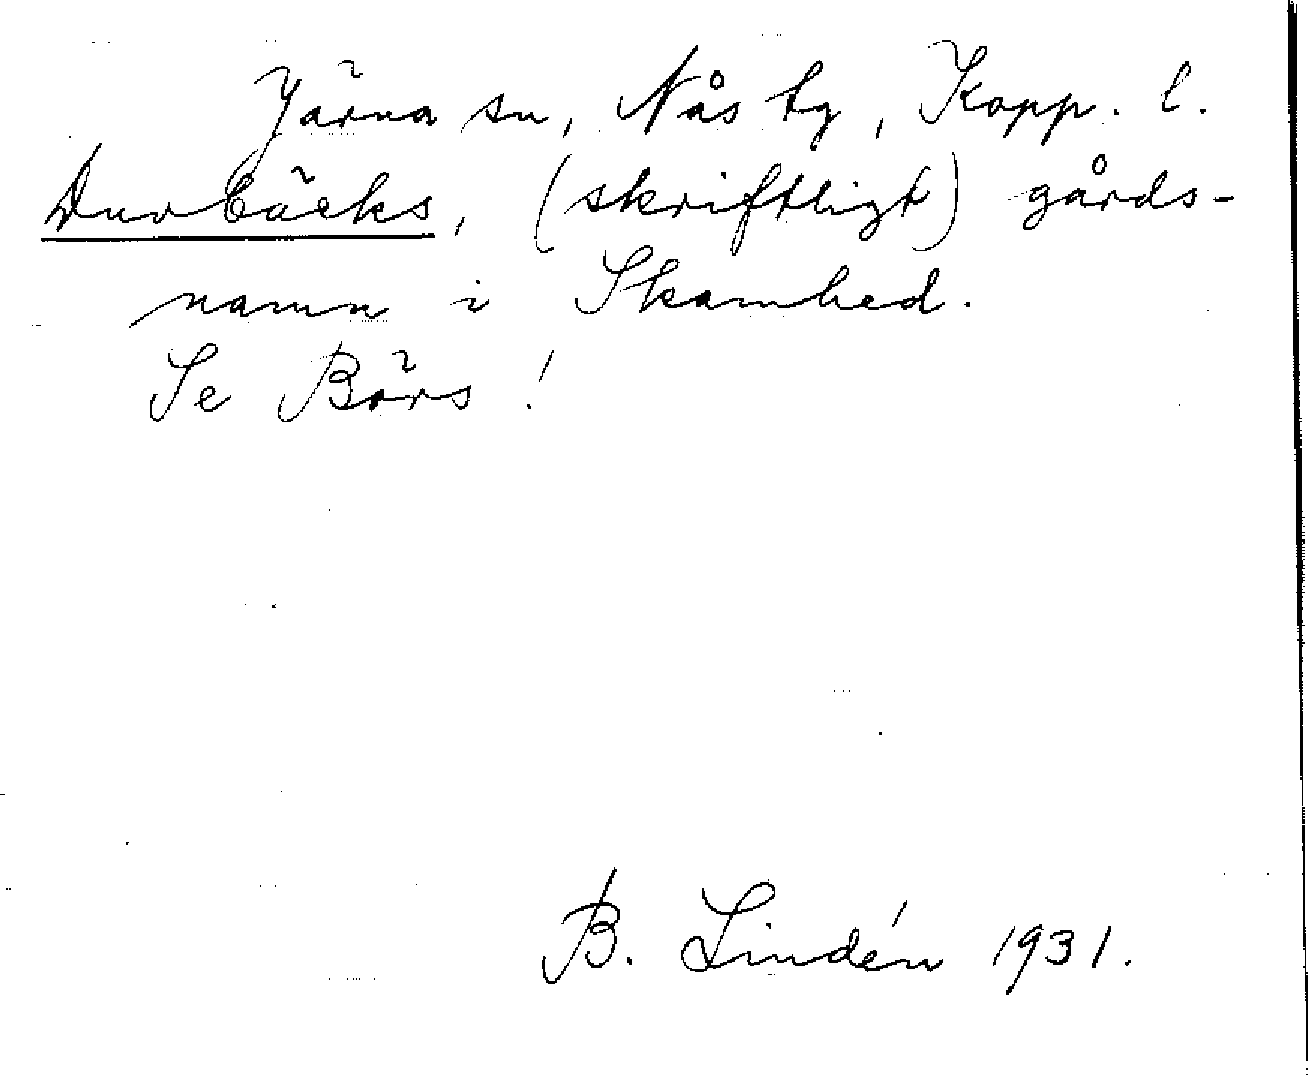 Järna sn, Nås tg, Kopp. l.
Duvbäcks, (skriftligt) gårds-
namn i Skamhed.
Se Börs!
B. Lindén 1931.